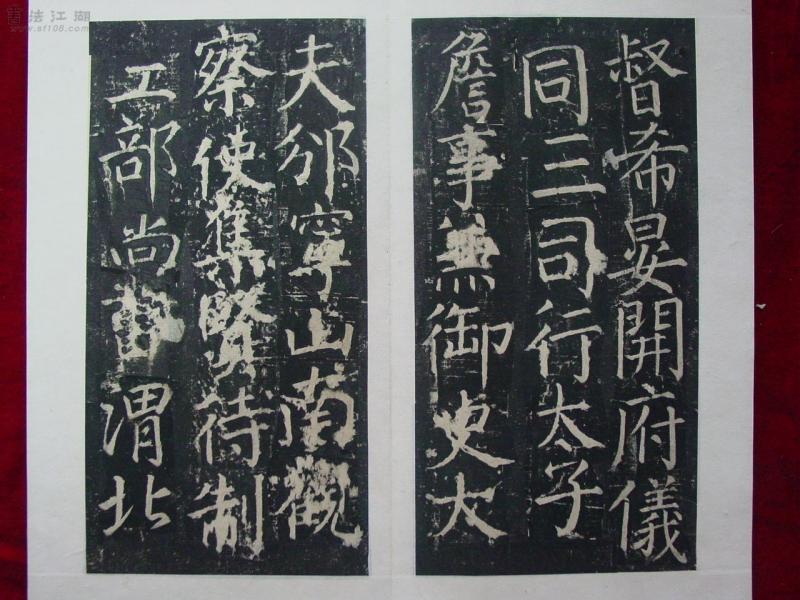 督希晏開府儀
同三司行太子
詹事兼御史大
夫邠寧山南觀
察使集賢待制
工部尚書渭北
書法江湖
www.sf108.com